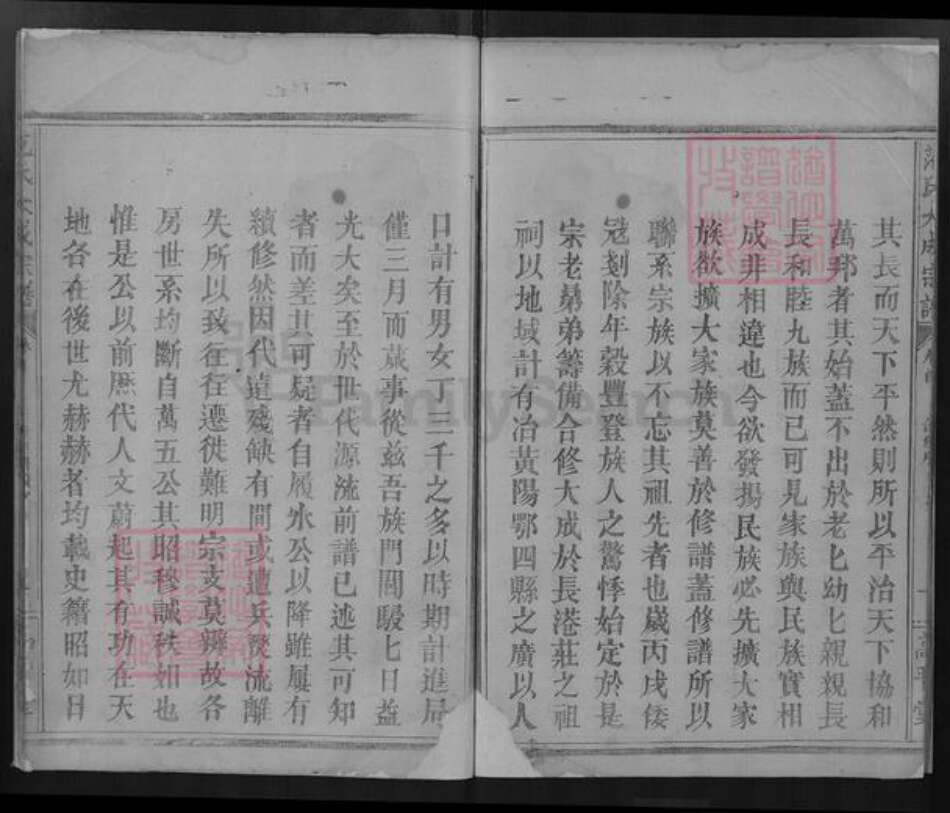 其長而天下平然則所以平治天下協和
萬邦者其始蓋不出於老匕幼匕親親長
長和睦九族而已可見家族與民族實相
成非相違也今欲發揚民族必先擴大家
族欲擴大家族莫善於修譜蓋修譜所以
聯系宗族以不忘其祖先者也歲丙戌倭
冦剗除年穀豐登族人之驚悸始定於是
宗老曁弟籌備合修大成於長港莊之祖
祠以地域計有冶黃陽鄂四縣之廣以人
口計有男女丁三千之多以時期計進局
僅三月而蕆事從兹吾族門閥駸匕日益
光大矣至於世代源流前譜已述其可知
者而差其可疑者自履氷公以降雖屢有
續修然因代遠殘缺有間或遭兵燹流離
失所以致往在遷徙難明宗支莫辨故各
房世系均斷自萬五公其昭穆誠秩如也
惟是公以前庶代人文蔚起其有功在天
地各在後世尤赫赫者均載史籍昭如日
氏大成宗譜
FamilySearch